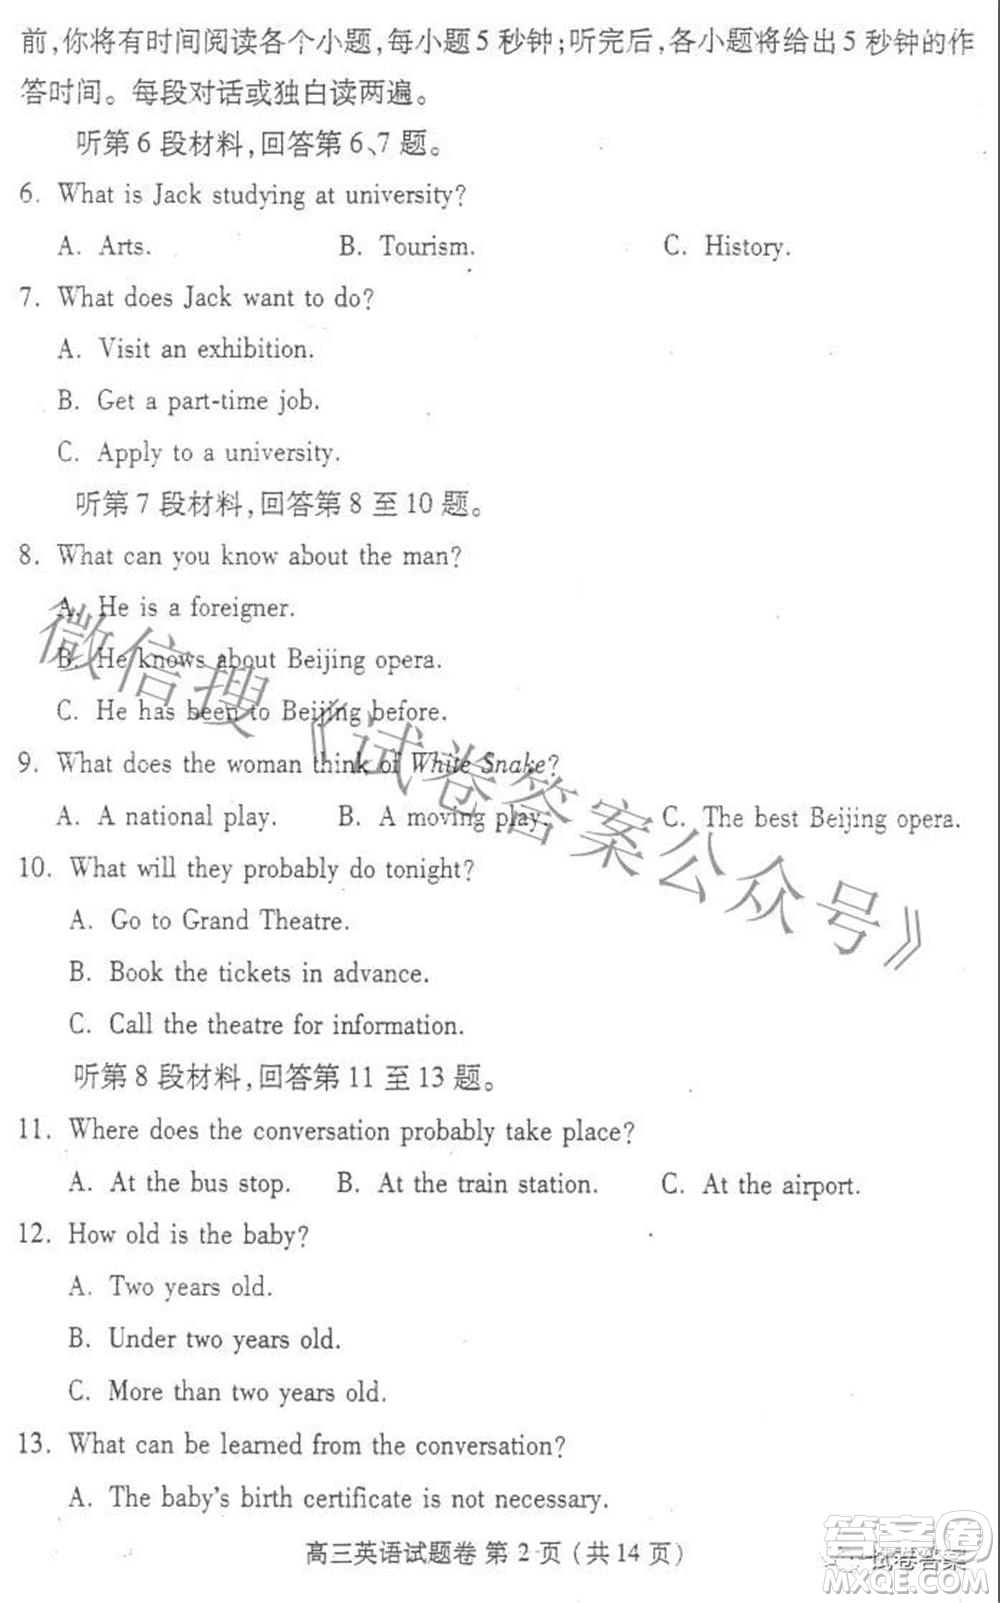 前,你将有时间阅读各个小题,每小题5秒钟;听完后,各小题将给出5秒钟的作
答时间。每段对话或独白读两遍。
听第6段材料,回答第6、7题。
6. What is Jack studying at university?
A. Arts. B. Tourism. C. History.
7. What does Jack want to do?
A. Visit an exhibition.
B. Get a part-time job.
C. Apply to a university.
听第7段材料,回答第8至10题。
8. What can you know about the man?
A. He is a foreigner.
B. He knows about Beijing opera.
C. He has been to Beijing before.
9. What does the woman think of White Snake?
A. A national play. B. A moving play. C. The best Beijing opera.
10. What will they probably do tonight?
A. Go to Grand Theatre.
B. Book the tickets in advance.
C. Call the theatre for information.
听第8段材料,回答第11至13题。
11. Where does the conversation probably take place?
A. At the bus stop. B. At the train station. C. At the airport.
12. How old is the baby?
A. Two years old.
B. Under two years old.
C. More than two years old.
13. What can be learned from the conversation?
A. The baby's birth certificate is not necessary.
高三英语试题卷 第2页(共14页)
微信搜《试卷答案公众号》
试卷答案
答案圈
MXQE.COM